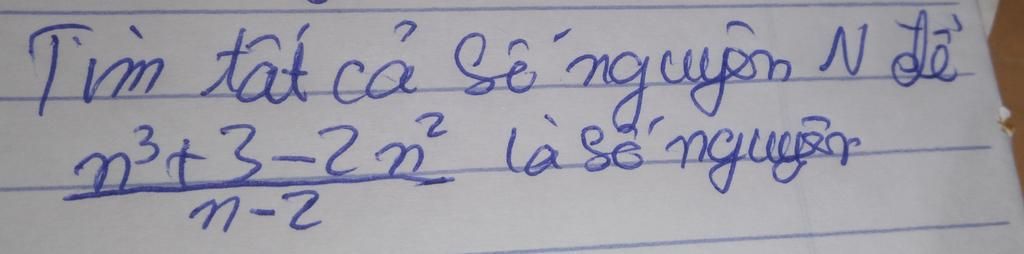 Tìm tất cả số nguyên N để
n³+3-2n² là số nguyên
n-2